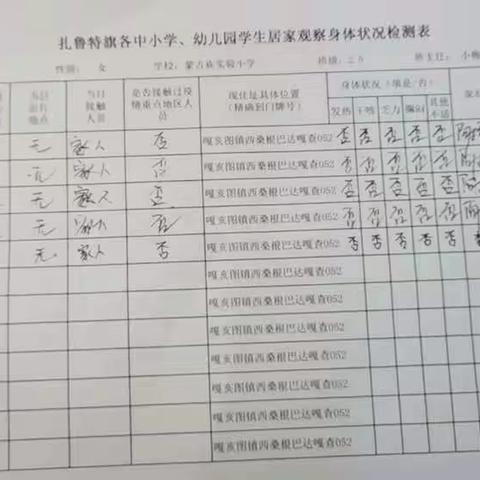 扎鲁特旗各中小学、幼儿园学生居家观察身体状况检测表
性别： 女 学校：蒙古族实验小学 班级：三5 班主任：小梅
当日 当日接触人员 是否接触过疫情重点地区人员 现住是具体位置（精确到门牌号） 身体状况（填是/否）
发热 干咳 乏力 腹泻 其他不适
无 家人 否 嘎亥图镇西桑根巴达嘎查052 否 否 否 否 否
无 家人 否 嘎亥图镇西桑根巴达嘎查052 否 否 否 否 否
无 家人 否 嘎亥图镇西桑根巴达嘎查052 否 否 否 否 否
无 家人 否 嘎亥图镇西桑根巴达嘎查052 否 否 否 否 否
无 家人 否 嘎亥图镇西桑根巴达嘎查052 否 否 否 否 否
嘎亥图镇西桑根巴达嘎查052
嘎亥图镇西桑根巴达嘎查052
嘎亥图镇西桑根巴达嘎查052
嘎亥图镇西桑根巴达嘎查052
嘎亥图镇西桑根巴达嘎查052
嘎亥图镇西桑根巴达嘎查052
嘎亥图镇西桑根巴达嘎查052